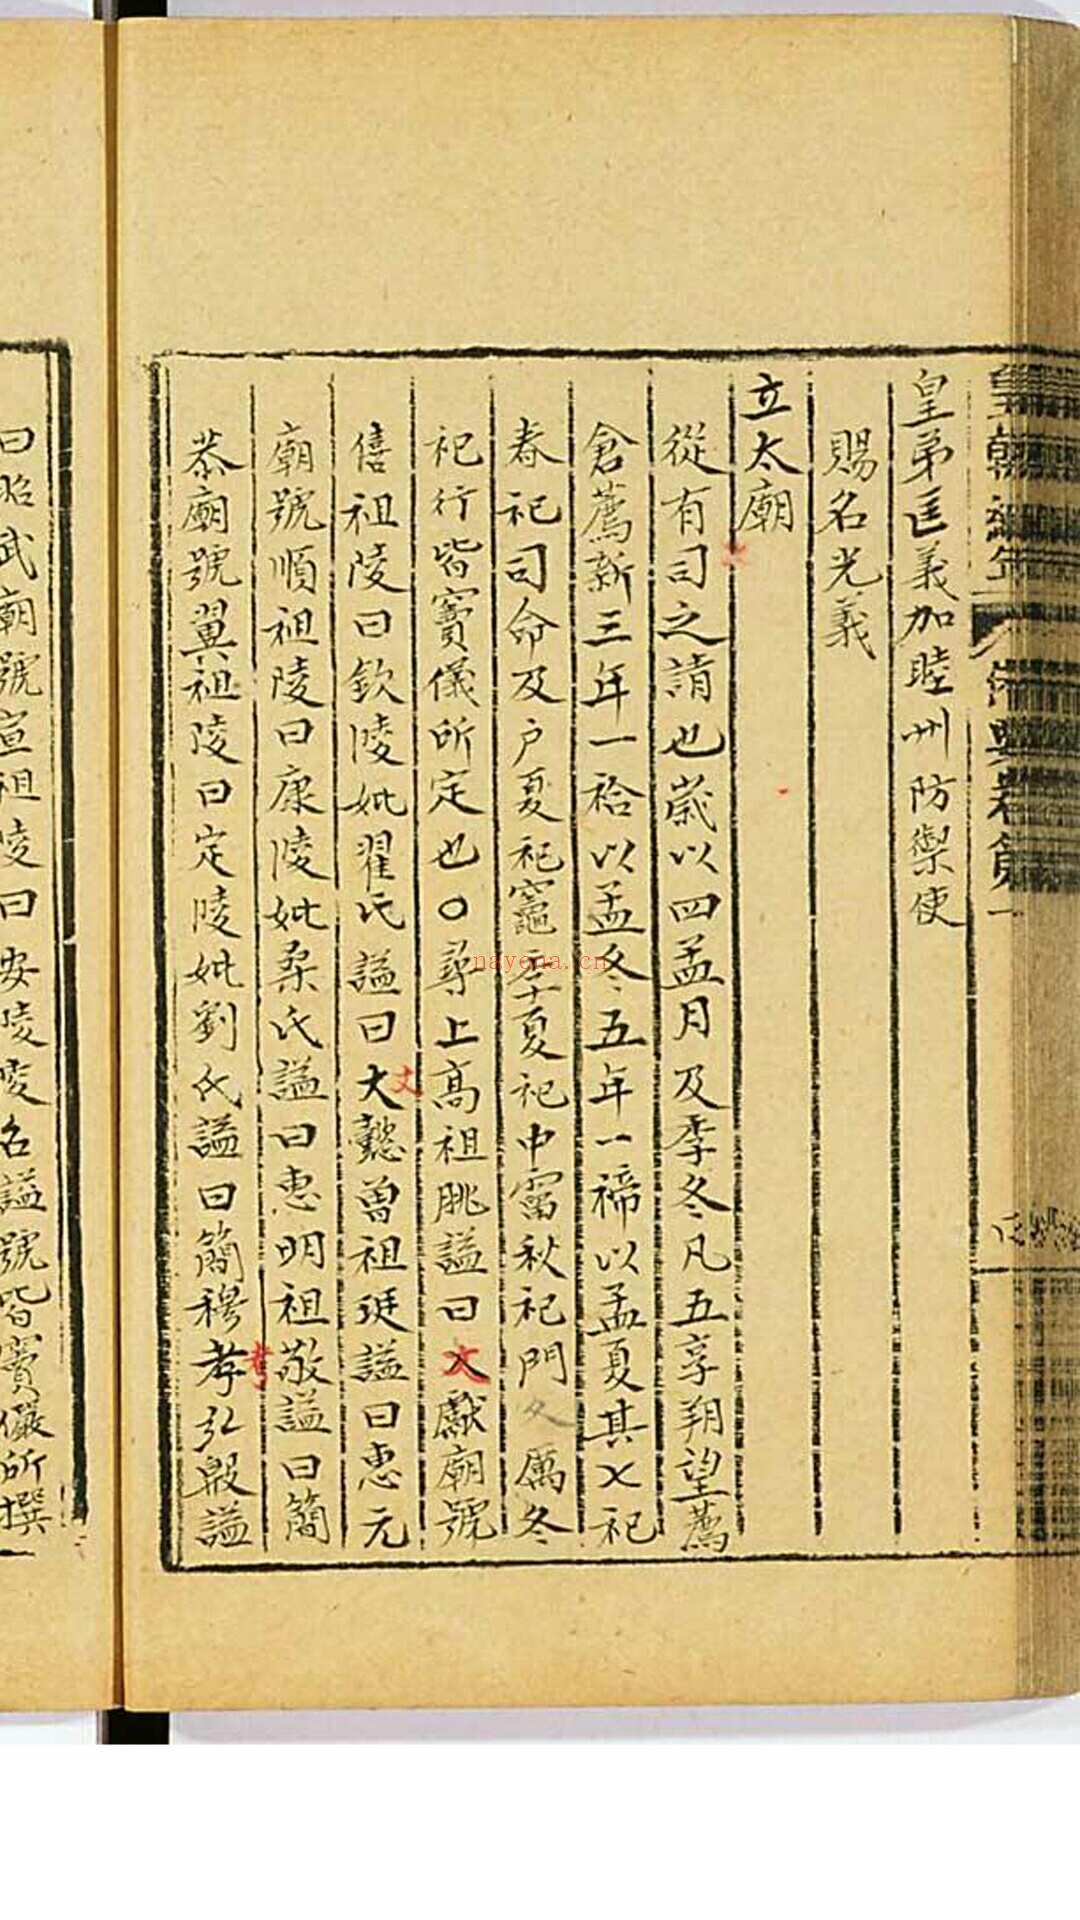 皇弟匡義加睦州防禦使
賜名光義
立太廟
從有司之請也歳以四孟月及季冬凡五享朔望薦
食薦新三年一祫以孟冬五年一禘以孟夏其七祀
春祀司命及户夏祀竈季夏祀中霤秋祀門及厲冬
祀行皆竇儀所定也〇尋上高祖朓謚曰文獻廟號
僖祖陵曰欽陵妣翟氏謚曰大懿曾祖珽謚曰惠元
丈
廟號順祖陵曰康陵妣桑氏謚曰惠明祖敬謚曰簡
恭廟號翼祖陵曰定陵妣劉氏謚曰簡穆孝弘殷謚
考
曰昭武廟號宣祖陵曰安陵陵名謚號皆竇儼所撰
nayona.cn